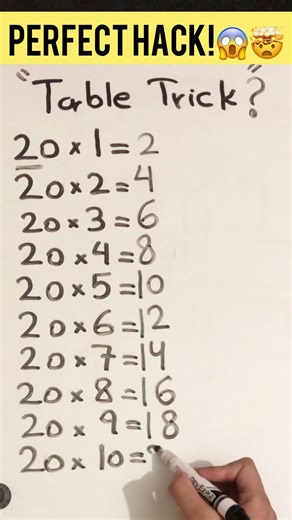 PERFECT HACK!😱🤯
"Table Trick"?
20 × 1 = 2
20 × 2 = 4
20 × 3 = 6
20 × 4 = 8
20 × 5 = 10
20 × 6 = 12
20 × 7 = 14
20 × 8 = 16
20 × 9 = 18
20 × 10 =